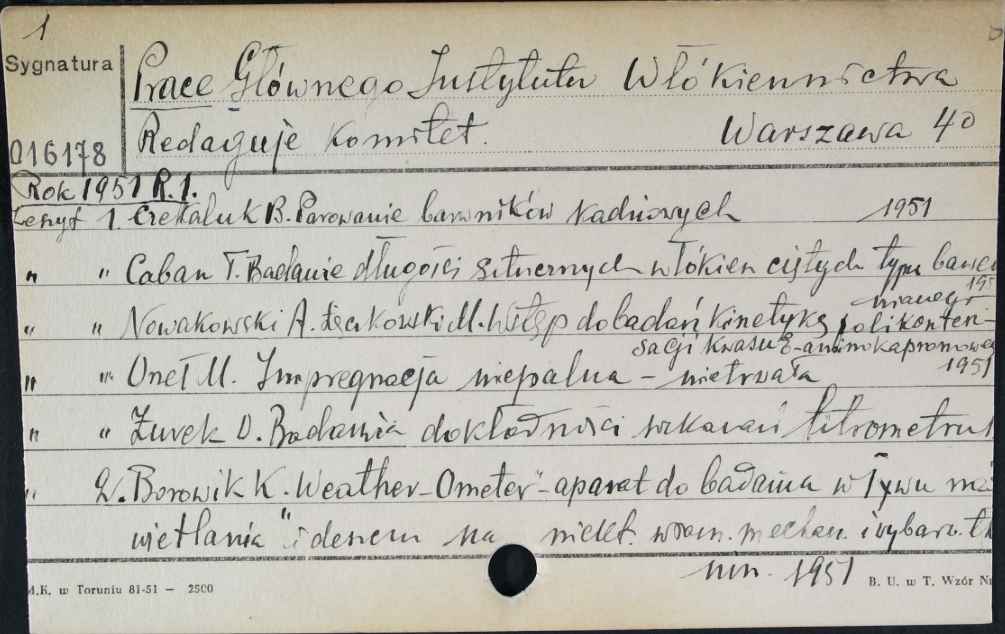 1
Sygnatura
Prace Głównego Instytutu Włókiennictwa
Redaguje Komitet. Warszawa 40
016178
Rok 1951 R. 1.
Zeszyt 1. B. Parowanie barwników kadziowych 1951
" " Caban T. Badanie długości sztucznych włókien ciętych typu
195
" " Nowakowski A. Łęczkowski M. Wstęp do badań kinetyką polikonden-
sacji kwasu ε-aminokapronowego
1951
" " Oneł M. Impregnacja niepalna – nietrwała
" " Żurek W. Badania dokładności wskazań fibrometru
" 2. Borowik K. "Weather-Ometer" – aparat do badania wpływu
wietlania" i deszczu na niekt. mechan. i wybarw.
1951
M.K. w Toruniu 81-51 — 2500
B. U. w T. Wzór Nr